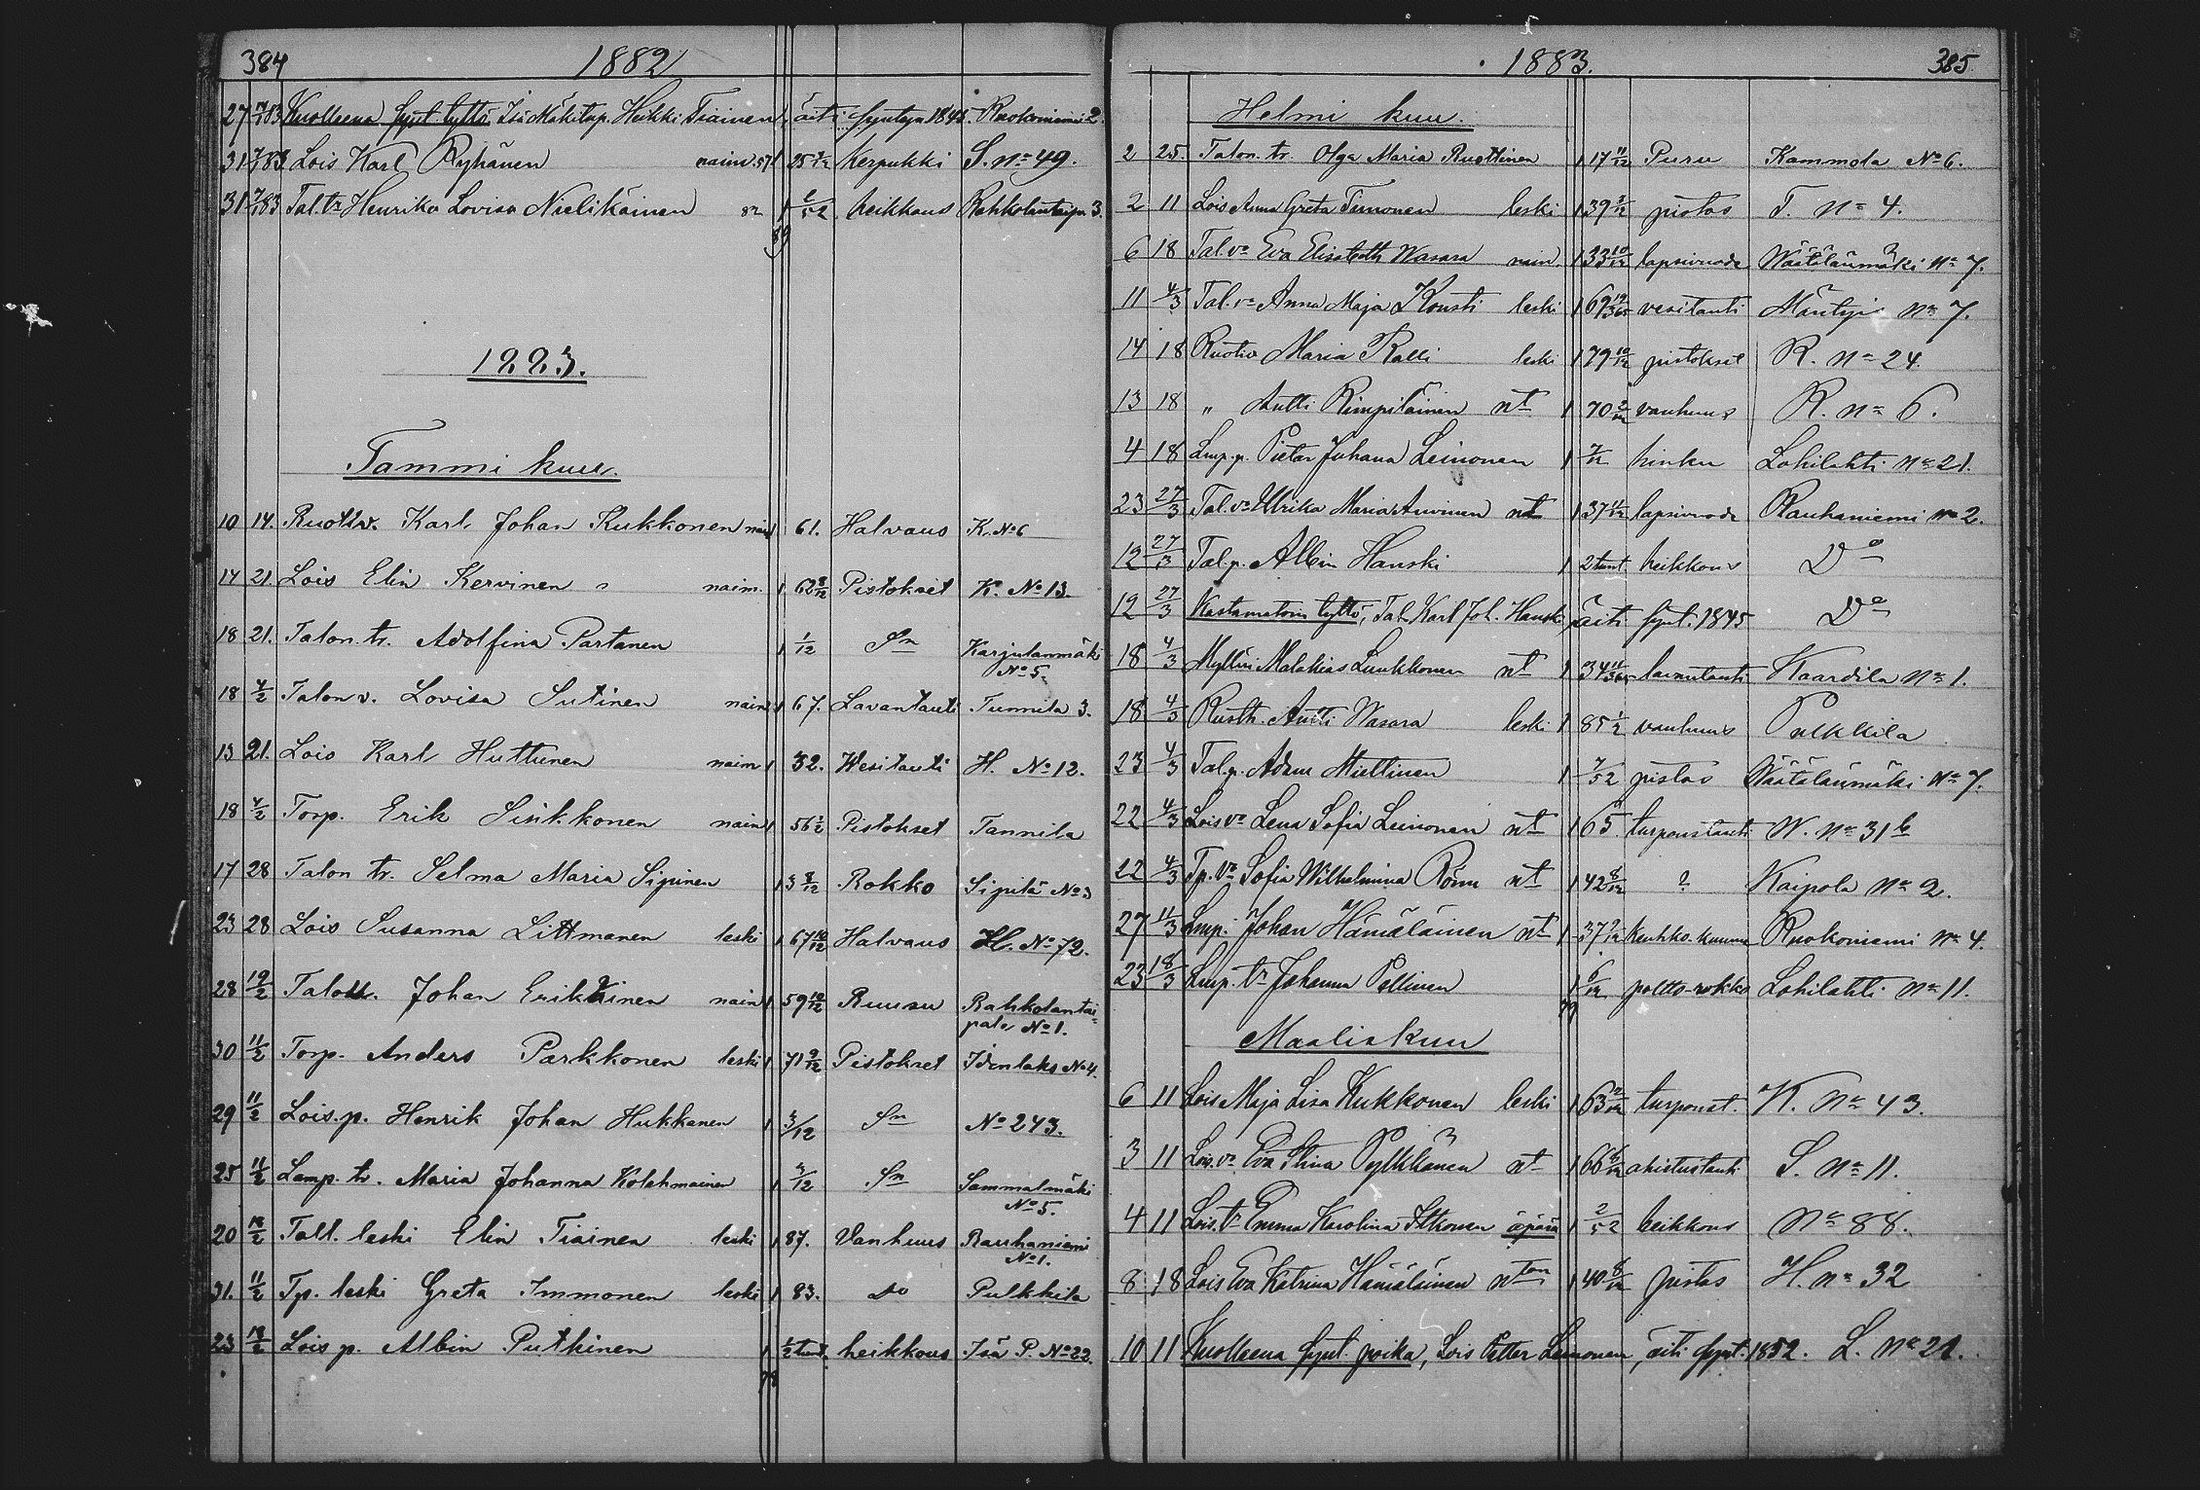 384 1882
27 14/1 83 Kuolleena synt. tyttö Isä Mäkitup. Heikki Tiainen 1 äiti syntyn 1845. Ruokoniemi 2.
31 7/1 83 Lois Karl Ryhänen naim. 57 1 25 3/12 Kerpukki S. no 49.
31 7/1 83 Tal. tr Henrika Lovisa Nielikäinen 82 1 6/52 heikkous Rahkolantaipa. 3.
89
1883.
Tammi kuu.
10 14. Ruotiv. Karl Johan Kukkonen nain 1 61. Halvaus K. No 6
14 21. Lois Elin Kervinen naim. 1 62 8/12 Pistokset K. No 13.
18 21. Talon. tr. Adolfina Partanen 1 1/12 Sn Karjulanmäki
No 5.
18 4/2 Talon v. Lovisa Sutinen nain 1 67. Lavantauti Tunnila 3.
13 21. Lois Karl Huttunen naim 1 32. Wesitauti H. No 12.
18 4/2 Torp. Erik Sinkkonen nain 1 56 1/2 Pistokset Tannila
17 28 Talon tr. Selma Maria Sipinen 1 3 8/12 Rokko Sipilä No 3
23 28 Lois Susanna Littmanen leski 1 67 10/12 Halvaus H. No 72.
28 12/2 Talon. Johan Erikäinen nain 1 59 10/12 Ruusu Rahkolantai=
pale No 1.
30 11/2 Torp. Anders Parkkonen leski 1 71 9/12 Pistokset Idenlaks No 4.
29 11/2 Lois. p. Henrik Johan Hukkanen 1 3/12 Sn No 243.
25 11/2 Lamp. tr. Maria Johanna Kolehmainen 1 3/12 Sn Sammalmäki
No 5.
20 18/2 Tall. leski Elin Tiainen leski 1 87. Vanhuus Rauhaniemi
No 1.
31. 11/2 Tp. leski Greta Immonen leski 1 83. Do Pulkkila
23 18/2 Lois p. Albin Putkinen 1 1/2 tunt. heikkous Isä P. No 22.
78
1883. 385
Helmi kuu.
2 25. Talon. tr. Olga Maria Ruottinen 1 17 11/12 Puru Kammola No 6.
2 11 Lois Anna Greta Timonen leski 1 39 3/12 pistos T. No 4.
6 18 Tal. va Eva Elisabeth Wasara nain. 1 33 10/12 lapsivuode Wäätälänmäki No 7.
11 4/3 Tal. va Anna Maja Kousti leski 1 69 19/365 vesitauti Mäntyi No 7.
14 18 Ruotiv Maria Ralli leski 1 79 10/12 pistokset R. No 24.
13 18 " Antti Rimpiläinen nt 1 70 2/12 vanhuus R. no 6.
4 18 Lmp. p. Pietar Juhana Leinonen 1 7/12 hinku Lohilahti No 21.
23 27/3 Tal. va Ulrika Maria Auvinen nt 1 37 11/12 lapsivuode Rauhaniemi No 2.
12 27/3 Tal. p. Albin Hanski 1 2 tunt. heikkous Do
12 27/3 Kastamatoin tyttö, Tal. Karl Joh. Hanski, äiti synt. 1845 Do
18 4/3 Mylläri Malakias Luukkonen nt 1 34 11/365 Kaardila No 1.
18 4/3 Rusth. Antti Wasara leski 1 85 1/2 vanhuus Pulkkila
23 4/3 Tal. p. Adam Miettinen 1 7/52 pistos Wäätälänmäki No 7.
22 4/3 Lois va Lena Sofia Leinonen nt 1 65 turpoustauti W. No 31 b
22 4/3 Tp. va Sofia Wilhelmina Römu nt 1 42 8/12 ? Kaipola No 2.
27 11/3 Lmp. Johan Hämäläinen nt 1 37 9/12 Keuhko-kuume Ruokoniemi No 4.
23 18/3 Lmp. tr Johanna Pellinen 1 6/12 poltto-rokko Lohilahti No 11.
79
Maaliskuu
6 11 Lois Maja Lisa Kukkonen leski 1 63 9/12 turpoust. K. No 43.
3 11 Lois. va Eva Stina Pylkkänen nt 1 66 6/12 ahistustauti S. No 11.
4 11 Lois. tr Emma Karolina Itkonen äpärä 1 2/52 heikkous No 88.
8 18 Lois Eva Katrina Hämäläinen nton 1 40 8/12 pistos H. no 32
10 11 Kuolleena synt. poika, Lois Petter Leinonen, äiti synt. 1852. L. No 21.